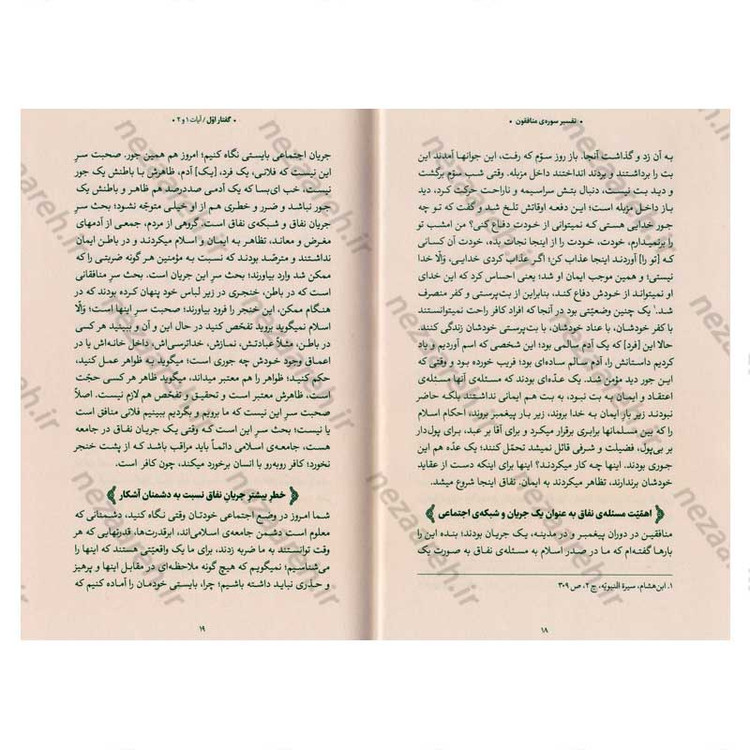 • تفسیر سوره‌ی منافقون •
به آن زد و گذاشت آنجا. باز روز سوّم که رفت، این جوانها آمدند این
بت را برداشتند و بردند انداختند داخل مزبله. وقتی شب سوّم برگشت
و دید بت نیست، دنبال بتش سراسیمه و ناراحت حرکت کرد، دید
باز داخل مزبله است؛ این دفعه اوقاتش تلخ شد و گفت که تو چه
جور خدایی هستی که نمیتوانی از خودت دفاع کنی؟ من امشب تو
را برنمیدارم، خودت، خودت را از اینجا نجات بده، خودت آن کسانی
که [تو را] آوردند اینجا عذاب کن؛ اگر عذاب کردی خدایی، والّا خدا
نیستی؛ و همین موجب ایمان او شد؛ یعنی احساس کرد که این خدای
او نمیتواند از خودش دفاع کند. بنابراین از بت‌پرستی و کفر منصرف
شد.۱ یک چنین وضعیّتی بود در آنجا که افراد کافر راحت نمیتوانستند
با کفر خودشان، با عناد خودشان، با بت‌پرستی خودشان زندگی کنند.
حالا این [فرد] که یک آدم سالمی بود؛ این شخصی که اسم آوردیم و یاد
کردیم داستانش را، آدم سالم ساده‌ای بود؛ فریب خورده بود و وقتی که
این جور دید مؤمن شد. یک عدّه‌ای بودند که مسئله‌ی آنها مسئله‌ی
اعتقاد و ایمان به بت نبود، به بت هم ایمانی نداشتند بلکه حاضر
نبودند زیر بار ایمان به خدا بروند، زیر بار پیغمبر بروند، احکام اسلام
را که بین مسلمانها برابری برقرار میکرد و برای آقا بر عبد، برای پول‌دار
بر بی‌پول، فضیلت و شرفی قائل نمیشد تحمّل کنند؛ یک عدّه هم این
جوری بودند. اینها چه کار میکردند؟ اینها برای اینکه دست از عقاید
خودشان برندارند، تظاهر میکردند به ایمان. نفاق اینجا شروع میشد.
اهمّیّت مسئله‌ی نفاق به عنوان یک جریان و شبکه‌ی اجتماعی
منافقین در دوران پیغمبر و در مدینه، یک جریان بودند؛ بنده این را
بارها گفته‌ام که ما در صدر اسلام به مسئله‌ی نفاق به صورت یک
۱. ابن‌هشام، سیرة النبویّه، ج ۲، ص ۳۰۹
۱۸
• گفتار اوّل / آیات ۱ و ۲ •
جریان اجتماعی بایستی نگاه کنیم؛ امروز هم همین جور. صحبت سرِ
این نیست که فلانی، یک فرد، [یک] آدم، ظاهرش با باطنش یک جور
نیست. خب ای‌بسا که یک آدمی صددرصد هم ظاهر و باطنش یک
جور نباشد و ضرر و خطری هم از او خیلی متوجّه نشود؛ بحث سرِ
جریان نفاق و شبکه‌ی نفاق است. گروهی از مردم، جمعی از آدمهای
مغرض و معاند، تظاهر به ایمان و اسلام میکردند و در باطن ایمان
نداشتند و مترصّد بودند که نسبت به مؤمنین هر گونه ضربتی را که
ممکن شد وارد بیاورند؛ بحث سرِ این جریان است. بحث سرِ منافقانی
است که در باطن، خنجری در زیر لباس خود پنهان کرده بودند که در
هنگام ممکن، این خنجر را فرود بیاورند؛ صحبت سرِ اینها است؛ والّا
اسلام نمیگوید بروید تفحّص کنید در حال این و آن و ببینید هر کسی
در باطن، مثلاً عبادتش، نمازش، خداترسی‌اش، داخل خانه‌اش یا در
اعماق وجود خودش چه جوری است؛ میگوید به ظواهر عمل کنید،
حکم کنید؛ ظواهر را هم معتبر میداند، میگوید ظاهر هر کسی حجّت
است، ظاهرش معتبر است و تحقیق و تفحّص هم لازم نیست. اصلاً
صحبت سرِ این نیست که ما برویم و بگردیم ببینیم فلانی منافق است
یا نیست؛ بحث سرِ این است که وقتی یک جریان نفاق در جامعه
هست، جامعه‌ی اسلامی دائماً باید مراقب باشد که از پشت خنجر
نخورد؛ کافر روبه‌رو با انسان برخورد میکند، چون کافر است.
خطر بیشتر جریان نفاق نسبت به دشمنان آشکار
شما امروز در وضع اجتماعی خودتان وقتی نگاه کنید، دشمنانی که
معلوم است دشمن جامعه‌ی اسلامی‌اند، ابرقدرت‌ها، قدرتهایی که هر
وقت توانستند به ما ضربه زدند، برای ما یک واقعیّتی هستند که اینها را
می‌شناسیم؛ نمیگویم که هیچ گونه ملاحظه‌ای در مقابل اینها و پرهیز
و حذری نباید داشته باشیم؛ چرا، بایستی خودمان را آماده کنیم که
۱۹
nezaareh.ir